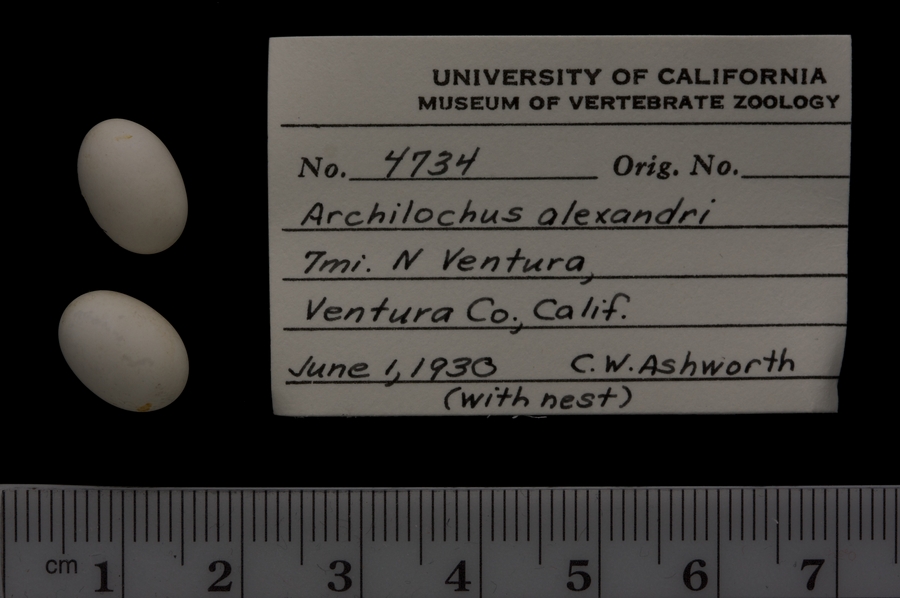 UNIVERSITY OF CALIFORNIA
MUSEUM OF VERTEBRATE ZOOLOGY
No. 4734 Orig. No.
Archilochus alexandri
7mi. N Ventura,
Ventura Co., Calif.
June 1, 1930 C.W. Ashworth
(with nest)
cm 1 2 3 4 5 6 7